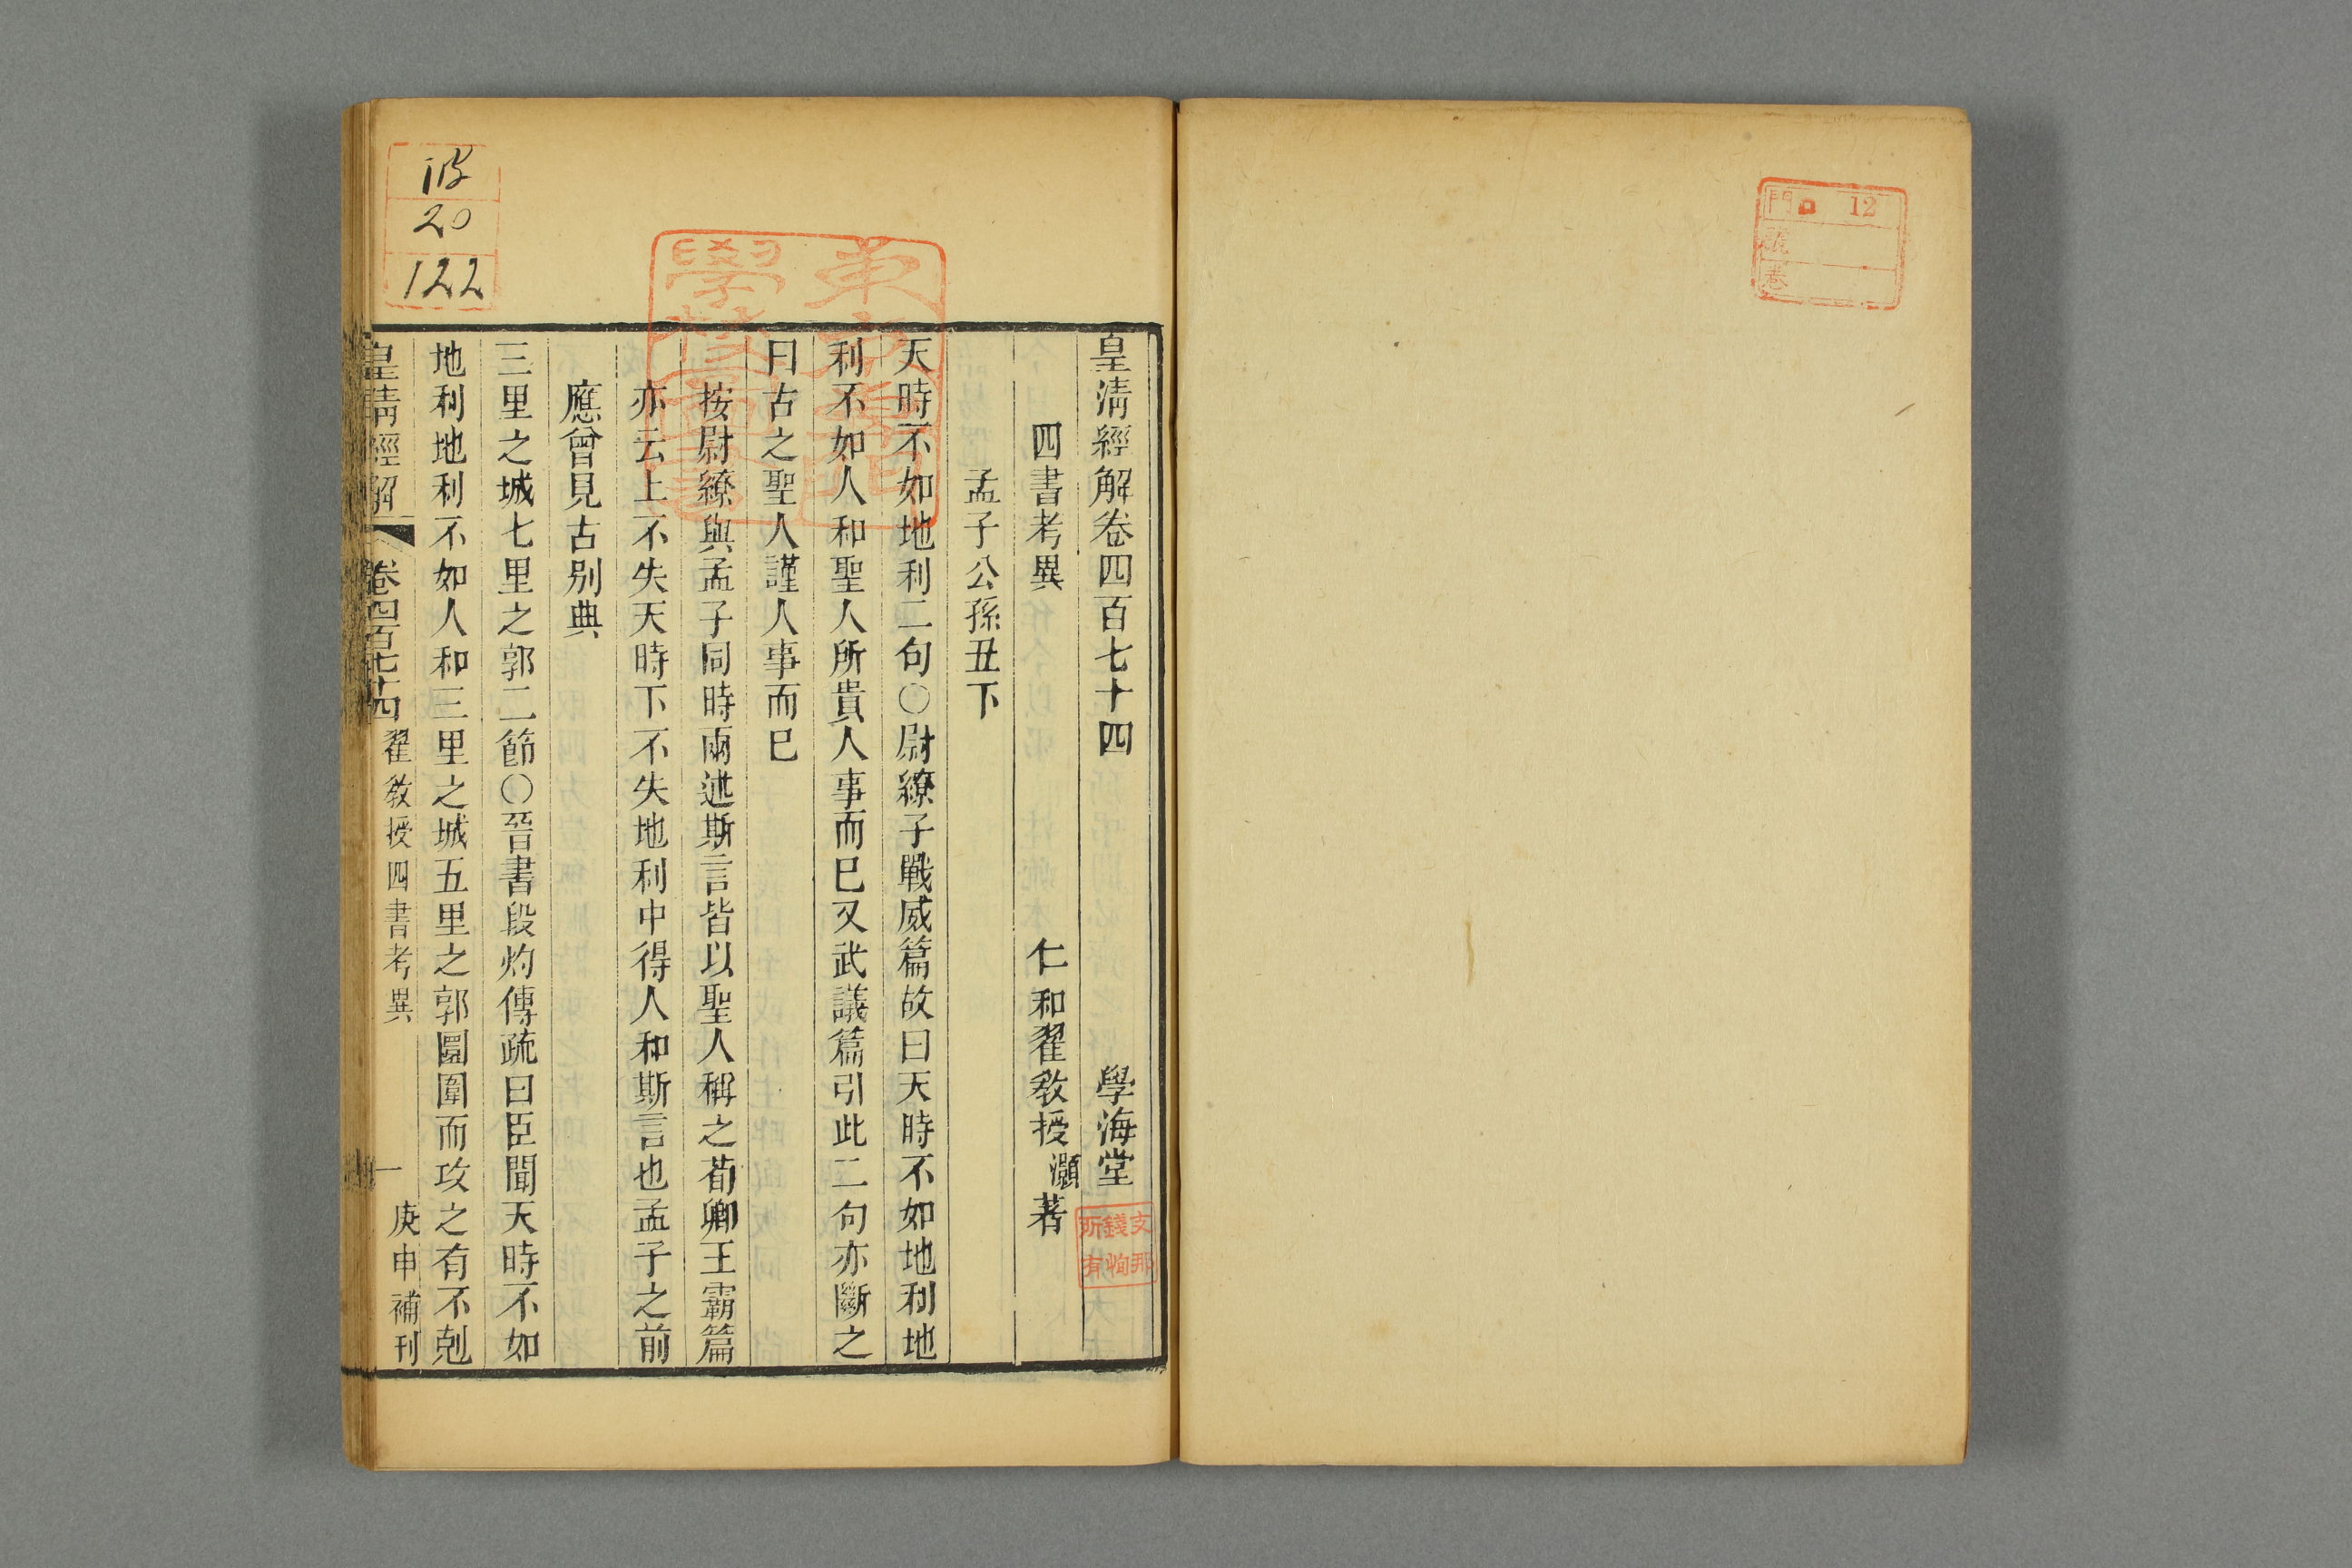 門 ロ 12
號
巻
皇淸經解卷四百七十四
學海堂
四書考異
仁和翟敎授灝著
孟子公孫丑下
天時不如地利二句○尉繚子戰威篇故曰天時不如地利地
利不如人和聖人所貴人事而已又武議篇引此二句亦斷之
曰古之聖人謹人事而已
按尉繚與孟子同時兩述斯言皆以聖人稱之荀卿王霸篇
亦云上不失天時下不失地利中得人和斯言也孟子之前
應曾見古别典
三里之城七里之郭二節○晉書段灼傳疏曰臣聞天時不如
地利地利不如人和三里之城五里之郭圜圍而攻之有不剋
皇淸經解
卷四百七十四
翟敎授四書考異
一
庚申補刊
支那
錢恂
所有
20
122